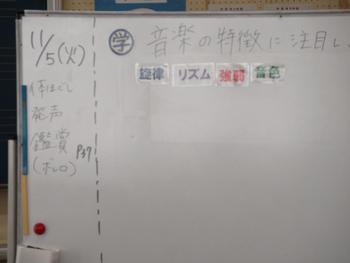 11/5(火)
体ほぐし
発声
鑑賞 P37
(ボレロ)
学 音楽の特徴に注目し
旋律 リズム 強弱 音色